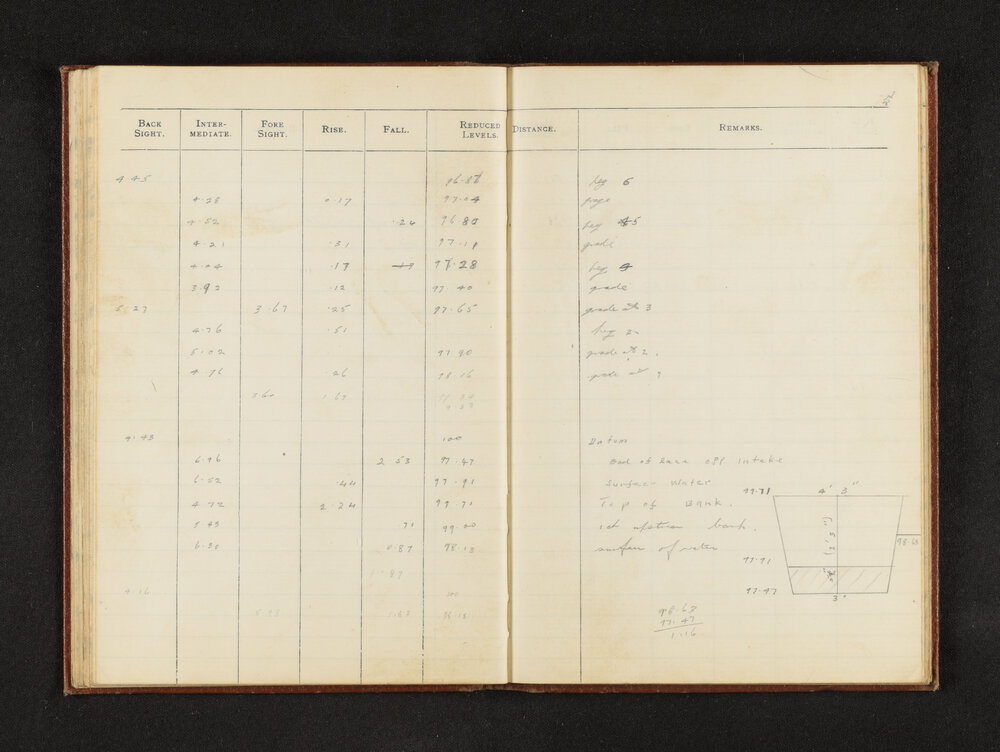 BACK SIGHT. INTER-MEDIATE. FORE SIGHT. RISE. FALL. REDUCED LEVELS. DISTANCE. REMARKS.
4.45 96.87 peg 6
4.28 0.17 97.04
4.52 .24 96.80 peg 5
4.21 .31 97.11 grade
4.04 .17 97.28 peg 4
3.92 .12 97.40 grade
5.27 3.67 .25 97.65 grade at 3
4.76 .51 peg 2
5.02 97.90 grade at 2
4.76 .26 98.16 at
3.60
4.43 100 Datum
6.96 2.53 97.47 Bed of Race opp intake
6.52 .44 97.91 Surface Water
4.72 2.24 99.71 Top of Bank.
5.43 .71 99.00 1st upstream bank.
6.30 0.87 98.13 surface of water
1.87
4.16 100
99.71 4' 3"
2' 3"
98.63
97.91
97.47
3'
98.63
97.47
1.16